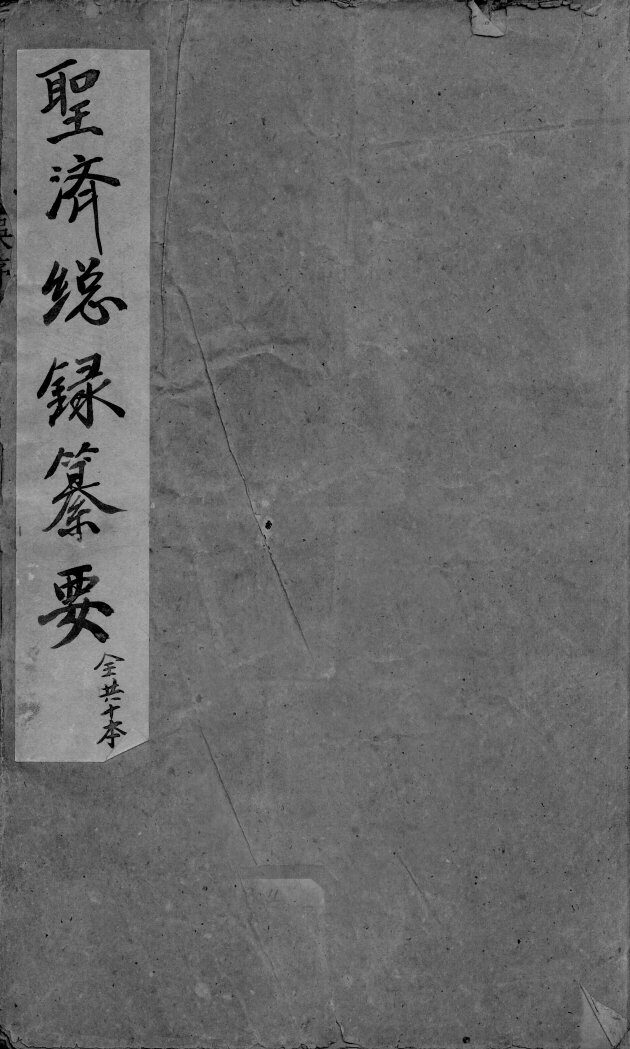 聖済総録纂要
全共十本